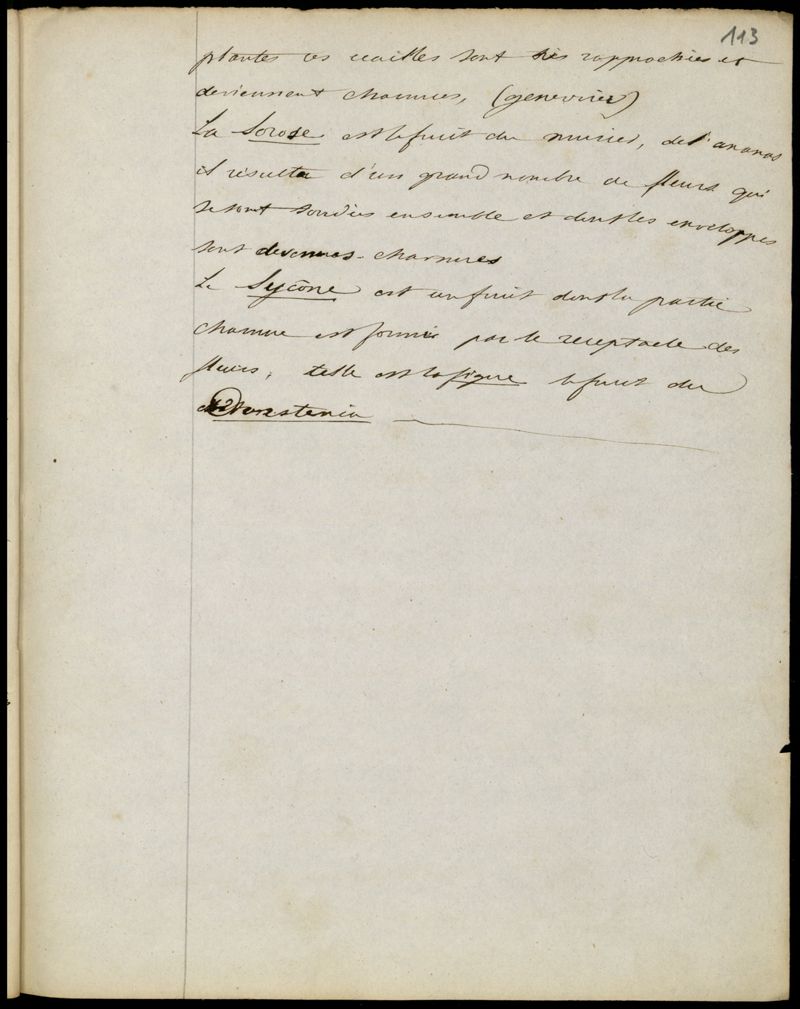 113
plantes ces écailles sont très rapprochées et
deviennent charnues, (genevrier)
La Sorose est le fruit du murier, de l'ananas
il résulte d'un grand nombre de fleurs qui
se sont soudées ensemble et dont les enveloppes
sont devenues charnues
Le Sycône est un fruit dont la partie
charnue est formée par le receptacle des
fleurs, telle est la figue le fruit du
Dorstenia